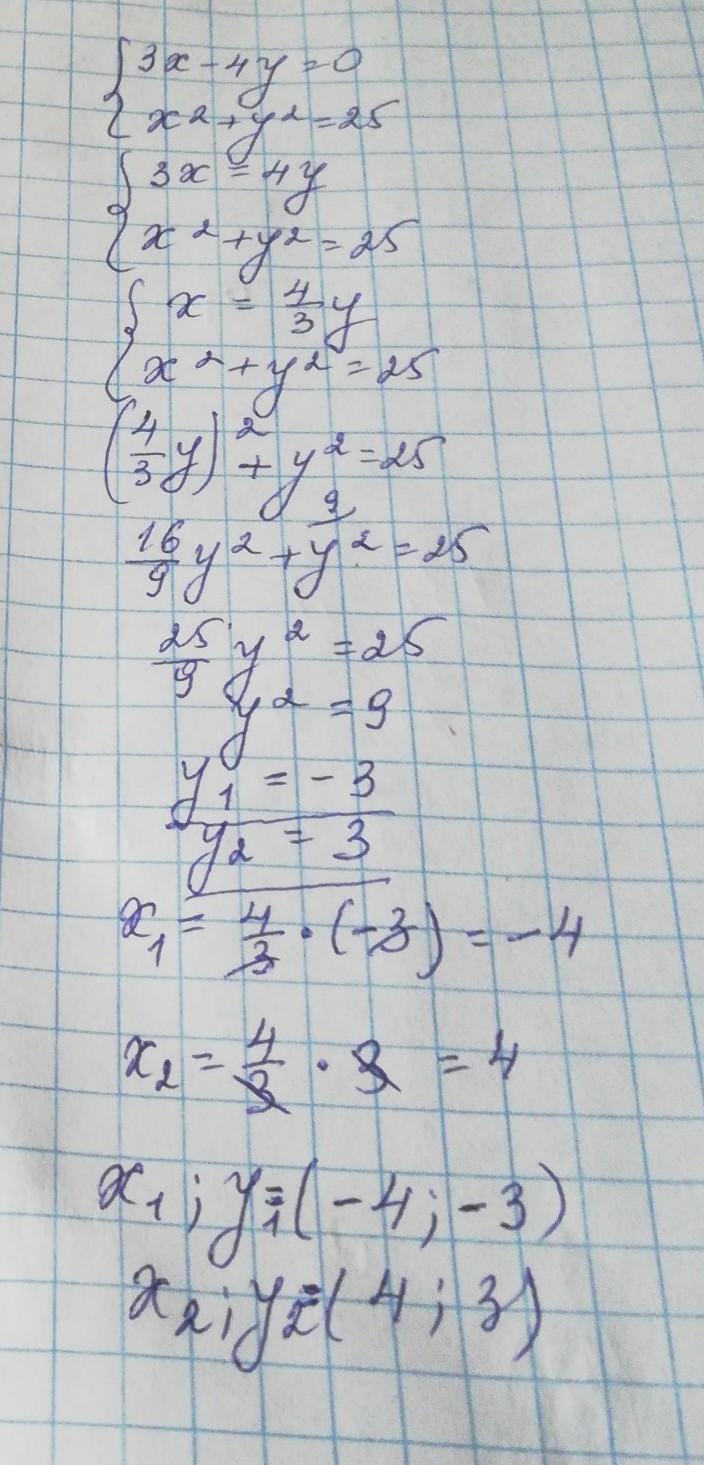 { 3x - 4y = 0
{ x² + y² = 25
{ 3x = 4y
{ x² + y² = 25
{ x = 4/3 y
{ x² + y² = 25
(4/3 y)² + y² = 25
16/9 y² + y² = 25
9
25/9 y² = 25
y² = 9
y₁ = -3
y₂ = 3
x₁ = 4/3 · (-3) = -4
x₂ = 4/3 · 3 = 4
x₁; y₁ = (-4; -3)
x₂; y₂ = (4; 3)